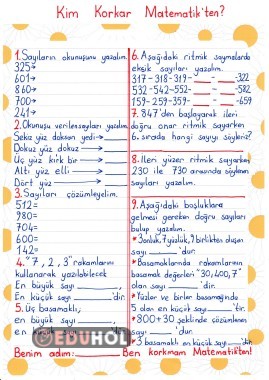 Kim Korkar Matematik'ten?
1.Sayıların okunuşunu yazalım.
325→
601→
860→
700→
241→
2.Okunuşu verilen sayıları yazalım.
Sekiz yüz doksan yedi →
Dokuz yüz dokuz →
Üç yüz kırk bir →
Altı yüz elli →
Dört yüz →
3.Sayıları çözümleyelim.
512=
980=
704=
600=
142=
4."7, 2, 3" rakamlarını
kullanarak yazılabilecek
En büyük sayı 'dir.
En küçük sayı 'dir.
5.Üç basamaklı;
en büyük sayı ,
en küçük sayı 'dür.
Benim adım:
6.Aşağıdaki ritmik saymalarda
eksik sayıları yazalım.
317-318-319- - -322
532-542-552- - -582
159-259-359- - -659
7. 847'den başlayarak ileri
doğru onar ritmik sayarken
6. sırada hangi sayıyı söyleriz?
8.İleri yüzer ritmik sayarken
230 ile 730 arasında söylenen
sayıları yazalım.
9.Aşağıdaki boşluklara
gelmesi gereken doğru sayıları
bulup yazalım.
*3 onluk, 7 yüzlük, 9 birlikten oluşan
sayı 'dur.
*Basamaklarında rakamların
basamak değerleri "30,400,7"
olan sayı 'dir.
*Yüzler ve birler basamağında
5 olan en küçük sayı 'tir.
*800+30 şeklinde çözümlenen
sayı 'dur.
*3 basamaklı en küçük sayı 'dür.
Ben korkmam Matematik'ten!
EDUHOL